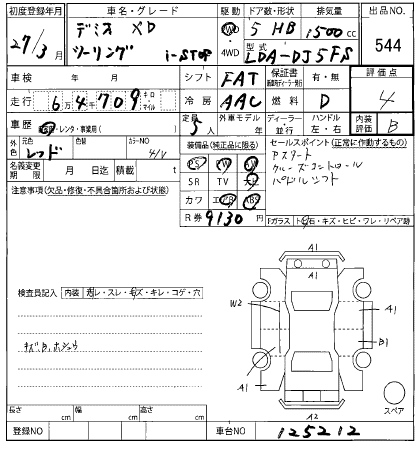 初度登録年月 車名・グレード 駆動 ドア数・形状 排気量 出品NO.
27/3月 デミオ XD 2WD 5 HB 1500cc
ツーリング i-STOP 4WD 型式 LDA-DJ5FS 544
車検 年 月 シフト FAT 保証書 有・無 評価点
走行 6万4千709 キロ マイル 冷房 AAC 燃料 D 4
車歴 自家用・レンタ・事業用( ) 定員 5人 外車モデル 年 ディーラー・並行 ハンドル 左・右 内装評価 B
外色 元色 レッド 色替 カラーNO 41V 装備品(純正品に限る) セールスポイント(正常に作動するもの)
名義変更期限 月 日迄 積載 t PS PW AW アスタート
注意事項(欠品・修復・不具合箇所および状態) SR TV ナビ クルーズコントロール
カワ エアB ABS パドルシフト
R券 9130円 Fガラス トビ石・キズ・ヒビ・ワレ・リペア跡
検査員記入 内装 汚レ・スレ・キズ・キレ・コゲ・穴
A1
A1
W2
A1
B1
キズ、B、ホシュウ
A1
A1
A2
スペア
長さ cm 幅 cm 高さ cm
登録NO 車台NO 125212